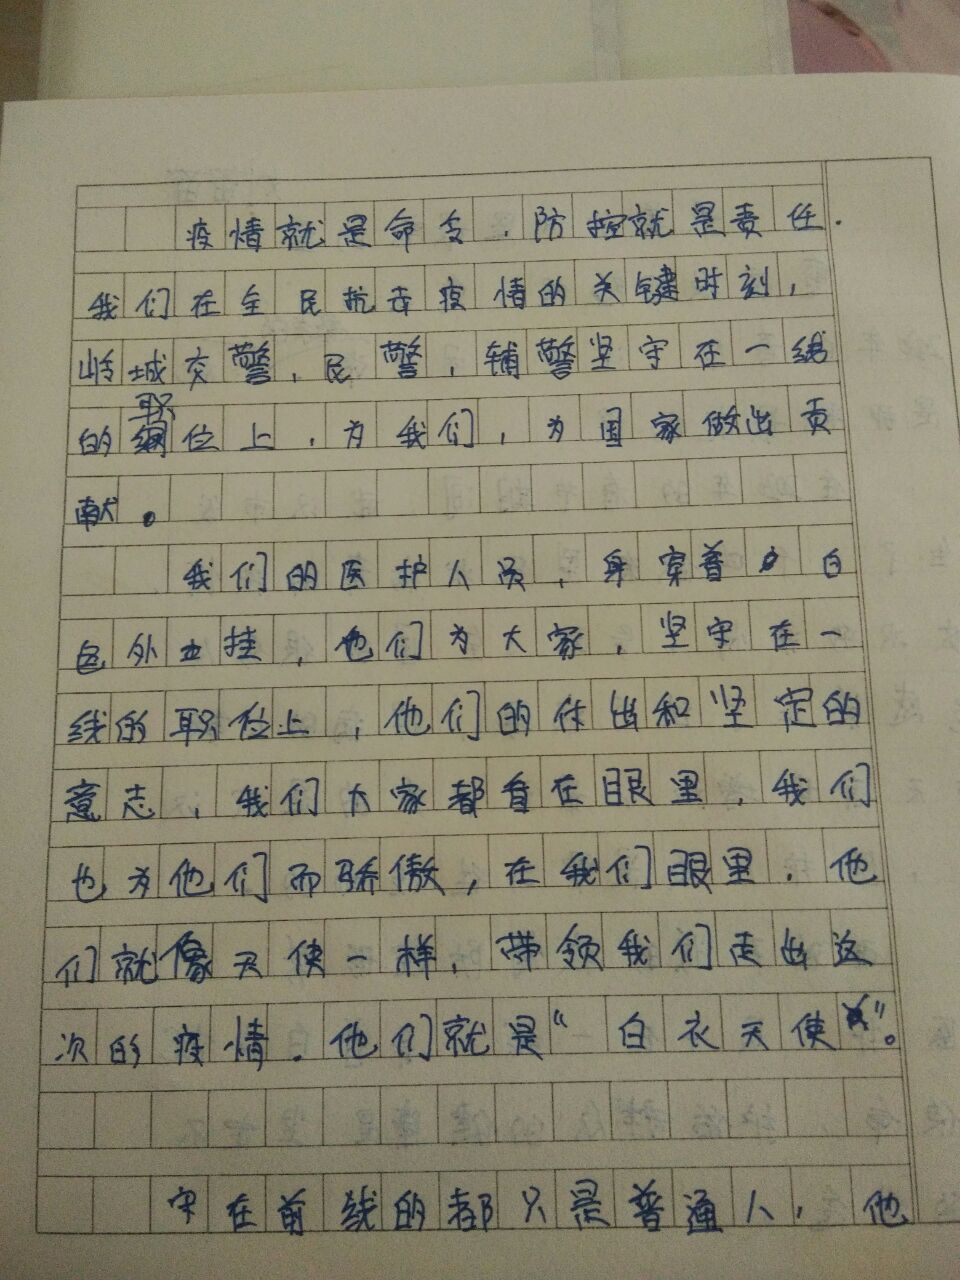 疫情就是命令，防控就是责任.
我们在全民抗击疫情的关键时刻，
岭城交警，民警，辅警坚守在一线
的职位上，为我们，为国家做出贡
献。
我们的医护人员，身穿着白
色外挂，他们为大家，坚守在一
线的职位上，他们的付出和坚定的
意志，我们大家都看在眼里，我们
也为他们而骄傲，在我们眼里，他
们就像天使一样，带领我们走出这
次的疫情．他们就是“白衣天使”。
守在前线的都只是普通人，他